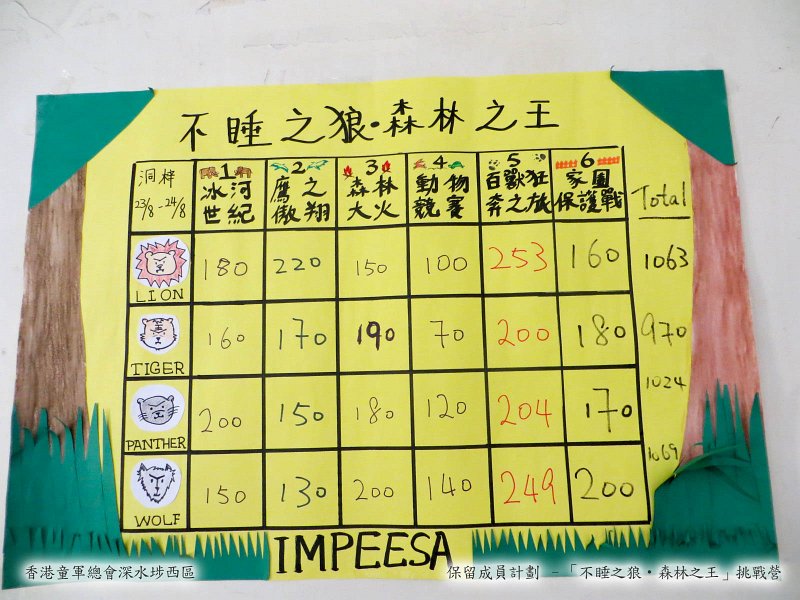 不睡之狼·森林之王
洞梓 23/8-24/8 1 冰河世紀 2 鷹之傲翔 3 森林大火 4 動物競賽 5 百獸狂奔之旅 6 家園保護戰 Total
LION 180 220 150 100 253 160 1063
TIGER 160 170 190 70 200 180 970
PANTHER 200 150 180 120 204 170 1024
WOLF 150 130 200 140 249 200 1069
IMPEESA
香港童軍總會深水埗西區
保留成員計劃 -「不睡之狼·森林之王」挑戰營